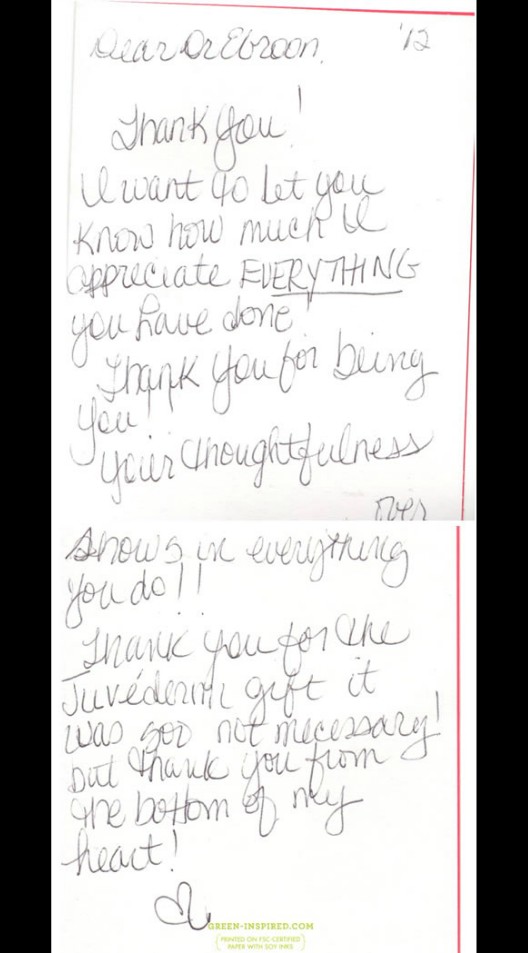 Dear Dr Ebroon. '12
Thank You!
I want to let you
know how much I
appreciate EVERYTHING
you have done!
Thank you for being
you!
Your thoughtfulness
over
shows in everything
you do!!
Thank you for the
Juvéderm gift it
was soo not necessary!
but thank you from
the bottom of my
heart!
GREEN-INSPIRED.COM
PRINTED ON FSC-CERTIFIED
PAPER WITH SOY INKS